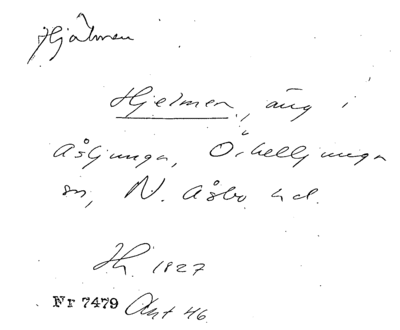 Hjälmen
Hjelmen, äng i
Åsljunga, Örkelljunga
sn, N. Åsbo hd.
Hh. 1827
Nr 7479 Akt 46